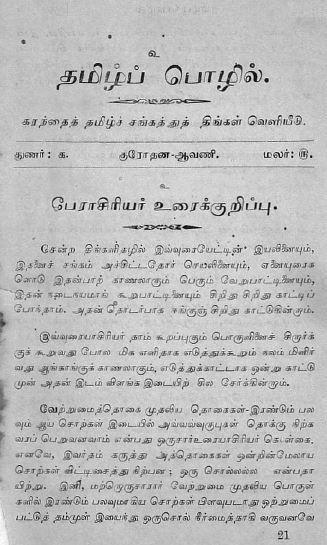 உ
தமிழ்ப் பொழில்.
கரந்தைத் தமிழ்ச் சங்கத்துத் திங்கள் வெளியீடு.
துணர்: க. குரோதன-ஆவணி. மலர்: ரு.
உ
பேராசிரியர் உரைக்குறிப்பு.
சென்ற திங்களிதழில் இவ்வுரையேட்டின் இயலினையும்,
இதனைச் சங்கம் அச்சிட்டதோர் செயலினையும், ஏனையுரைக
ளோடு இதன்பாற் காணலாகும் பெரும் வேறுபாட்டினையும்,
இதன் நடைநயமாங் கூறுபாட்டினையும் சிறிது சிறிது காட்டிப்
போந்தாம். அதன் தொடர்பாக ஈங்குஞ் சிறிது காட்டுகின்றாம்.
இவ்வுரையாசிரியர் தாம் கூறப்புகும் பொருளினைச் சிறார்க்
குக் கூறுவது போல மிக எளிதாக எடுத்துக்கூறும் நலம் மிளிர்
வது ஆங்காங்குக் காணலாகும், எடுத்துக்காட்டாக ஒன்று காட்டு
முன் அதன் இடம் விளங்க இடையிற் சில சேர்க்கின்றாம்.
வேற்றுமைத்தொகை முதலிய தொகைகள்-இரண்டும் பல
வும் ஆய சொற்கள் இடையில் அவ்வவ்வுருபுகள் தொக்கு நிற்க
வரப் பெறுவனவாம் என்பது ஒருசார் உரையாசிரியர் கொள்கை.
எனவே, இவர்தம் கருத்து அத்தொகைகள் ஒன்றின்மேலாய
சொற்கள் விட்டிசைத்து நிற்பன; ஒரு சொல்லல்ல என்பதா
யிற்று. இனி, மற்றொருசாரார் வேற்றுமை முதலிய பொருள்
களில் இரண்டும் பலவுமாகிய சொற்கள் பிளவுபடாது ஒற்றுமைப்
பட்டுத் தம்முள் இயைந்து ஒருசொல் நீர்மைத்தாகி வருவனவே
21